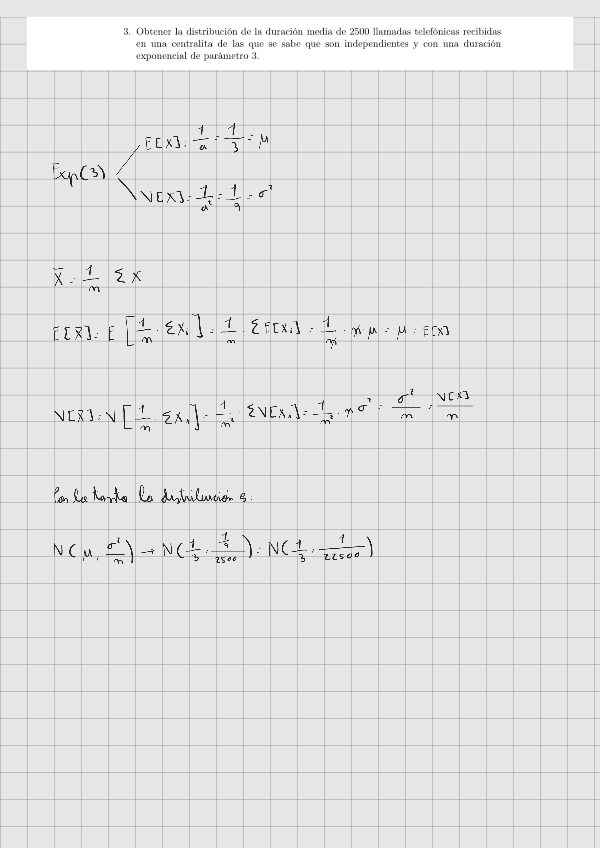 3. Obtener la distribución de la duración media de 2500 llamadas telefónicas recibidas
en una centralita de las que se sabe que son independientes y con una duración
exponencial de parámetro 3.
E[X] = 1/a = 1/3 = μ
Exp(3)
V[X] = 1/a² = 1/9 = σ²
X̄ = 1/n Σ X
E[X̄] = E [1/n · ΣXᵢ] = 1/n · ΣE[Xᵢ] = 1/n · n μ = μ = E[X]
V[X̄] = V [1/n · ΣXᵢ] = 1/n² · ΣV[Xᵢ] = 1/n² · n σ² = σ²/n = V[X]/n
Por lo tanto la distribución es:
N(μ, σ²/n) → N(1/3, (1/9)/2500) = N(1/3, 1/22500)